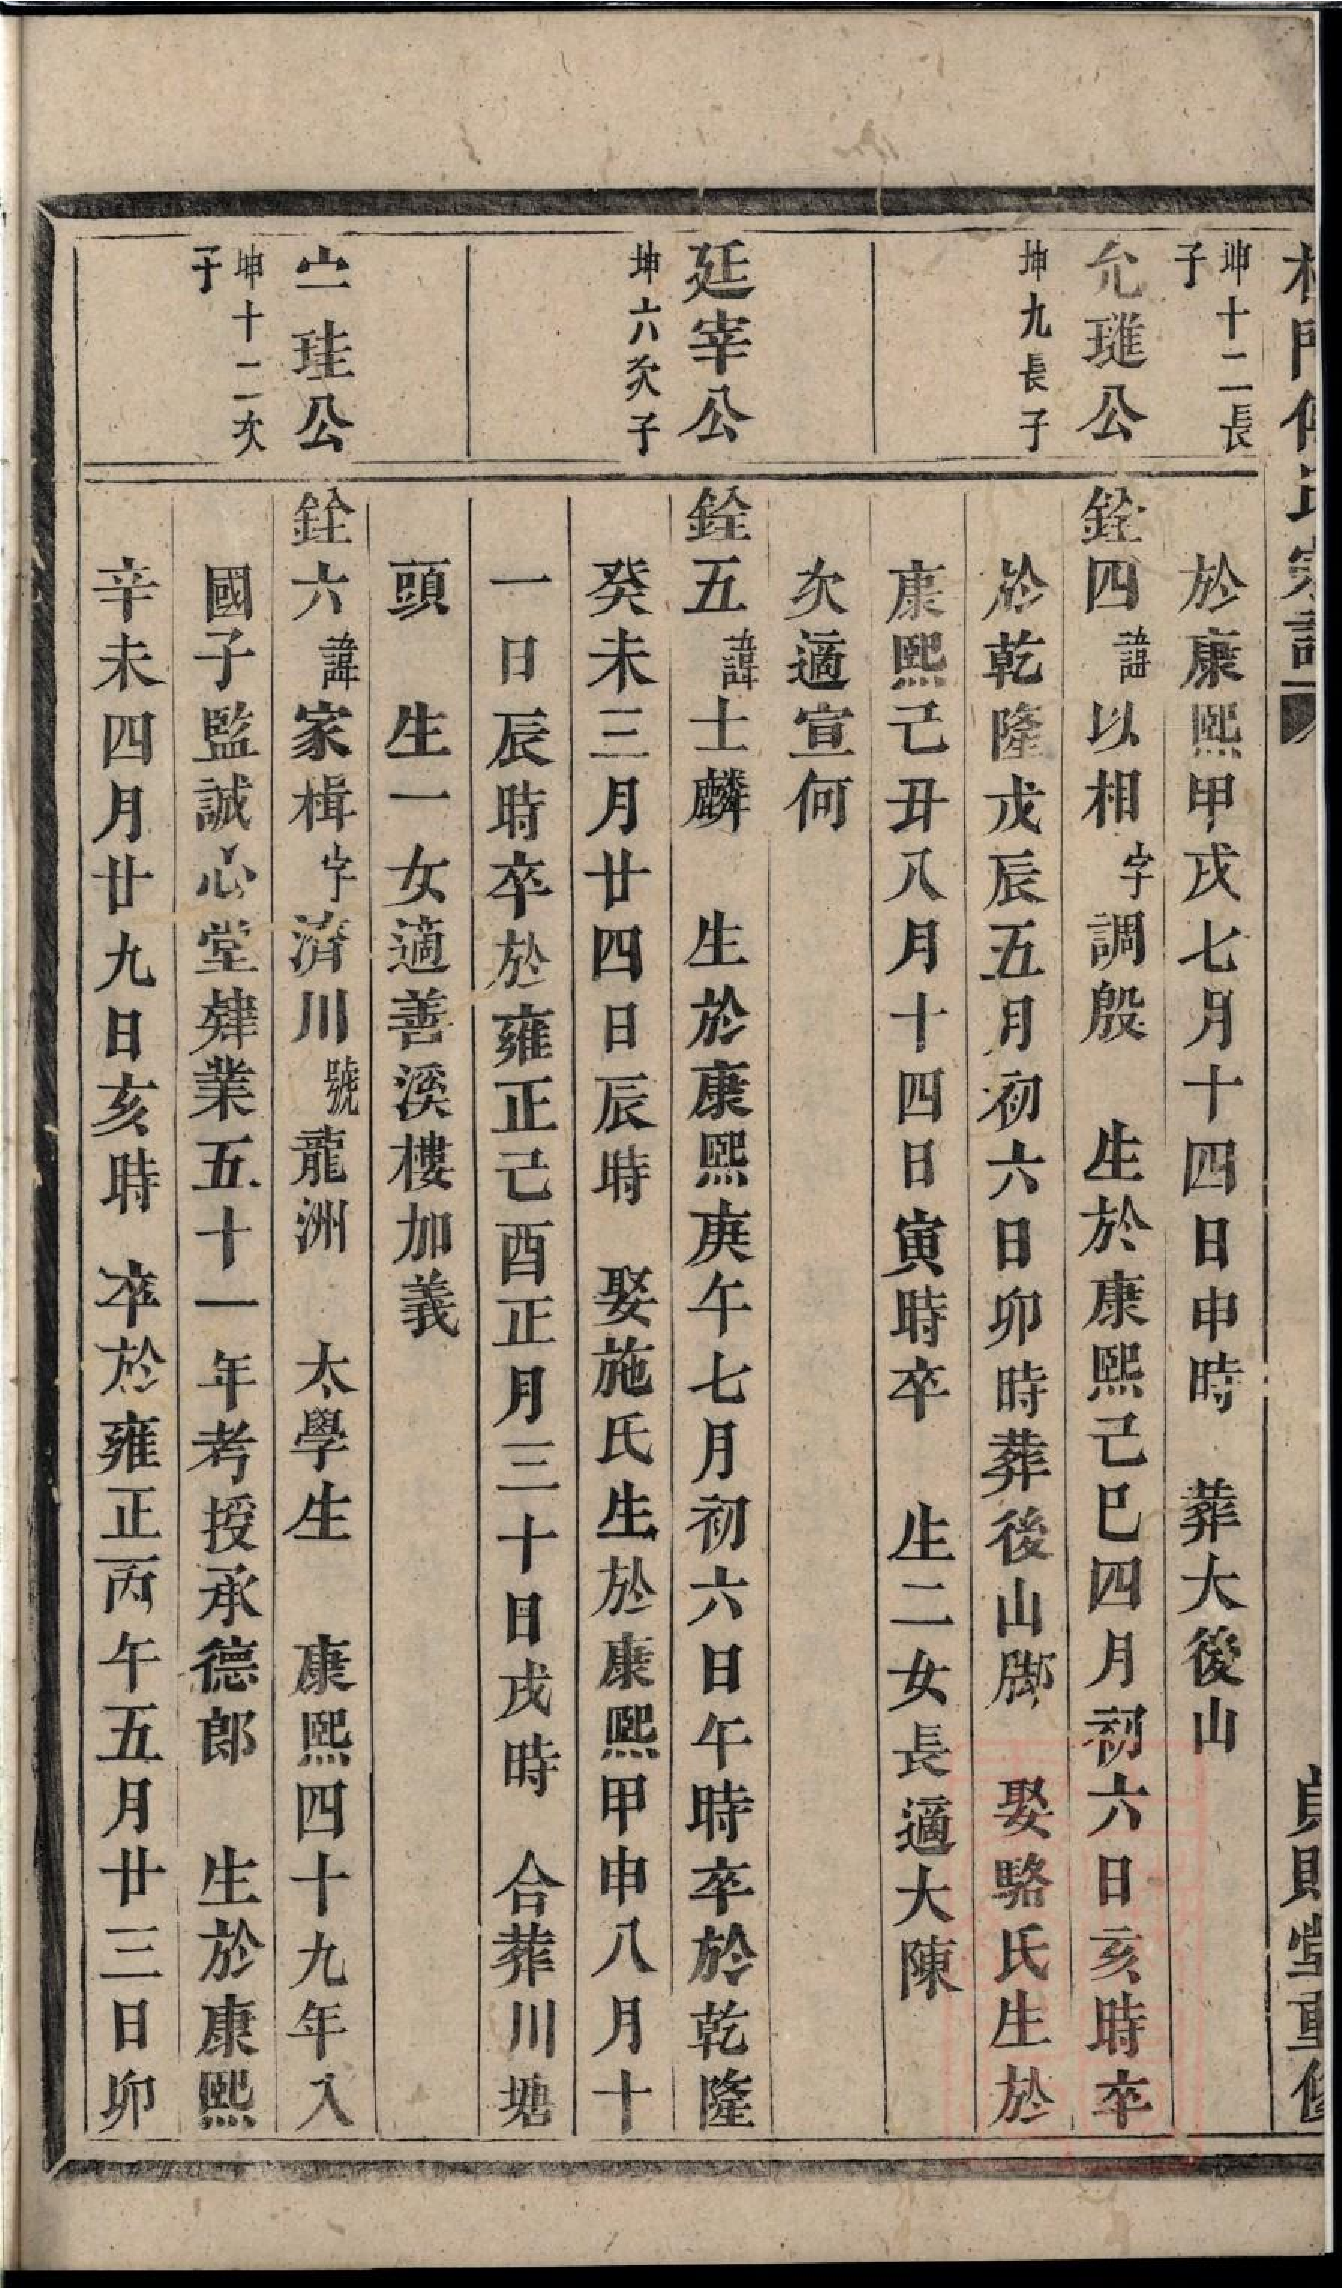 門 氏宗譜
貞則堂重修
坤十二長
子
於康熙甲戌七月十四日申時 葬大後山
允璡公
坤九長子
銓四諱以相字調殷 生於康熙己巳四月初六日亥時卒
於乾隆戊辰五月初六日卯時葬後山脚 娶駱氏生於
康熙己丑八月十四日寅時卒 生二女長適大陳
次適宣何
廷宰公
坤六次子
銓五諱士麟 生於康熙庚午七月初六日午時卒於乾隆
癸未三月廿四日辰時 娶施氏生於康熙甲申八月十
一日辰時卒於雍正己酉正月三十日戌時 合葬川塘
頭 生一女適善溪樓加義
珪公
坤十二次
子
銓六諱家楫字濟川號龍洲 太學生 康熙四十九年入
國子監誠心堂肄業五十一年考授承德郎 生於康熙
辛未四月廿九日亥時 卒於雍正丙午五月廿三日卯